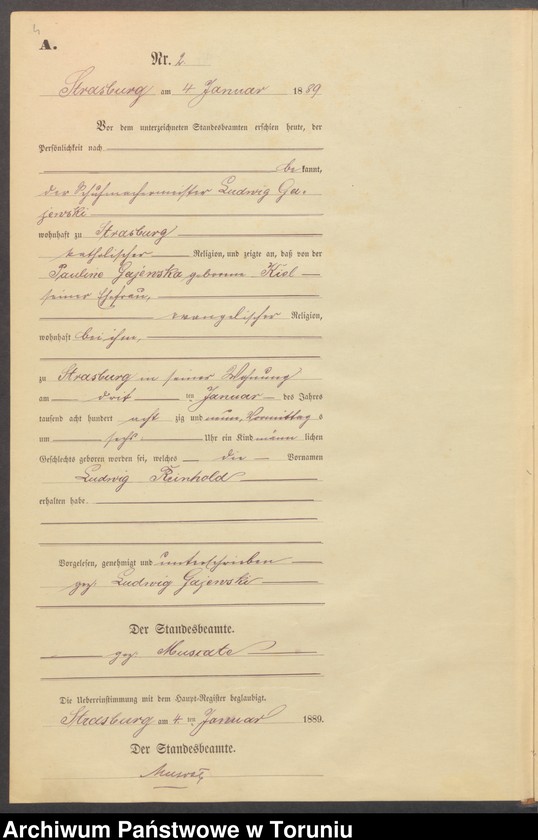 A.
Nr. 2
Strasburg am 4 Januar 1889
Vor dem unterzeichneten Standesbeamten erschien heute, der
Persönlichkeit nach
be kannt,
der Schuhmachermeister Ludwig Ga-
jewski
wohnhaft zu Strasburg
katholischer Religion, und zeigte an, daß von der
Pauline Gajewska geborene Kiel
seiner Ehefrau,
evangelischer Religion,
wohnhaft bei ihm,
zu Strasburg in seiner Wohnung
am drei ten Januar des Jahres
tausend acht hundert acht zig und neun, Vormittag s
um sechs Uhr ein Kind männ lichen
Geschlechts geboren worden sei, welches die Vornamen
Ludwig Reinhold
erhalten habe.
Vorgelesen, genehmigt und unterschrieben
gez. Ludwig Gajewski
Der Standesbeamte.
gez. Muscate
Die Uebereinstimmung mit dem Haupt-Register beglaubigt.
Strasburg am 4 ten Januar 1889.
Der Standesbeamte.
Archiwum Państwowe w Toruniu